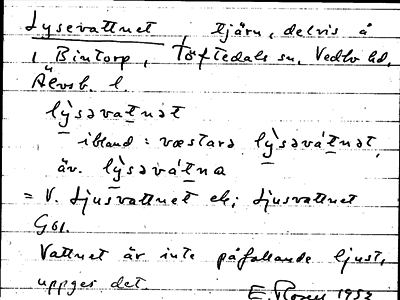 Lysevattnet, tjärn, delvis å
1 Bintorp, Töftedals sn, Vedbo hd,
Älvsb. l.
lỳsəvatnət
ibland: væstarə lỳsəvátnət,
äv. lỳsəvátna
= V. Ljusvattnet ek; Ljusvattnet
GSI.
Vattnet är inte påfallande ljust,
uppges det.
E. Rosell 1952